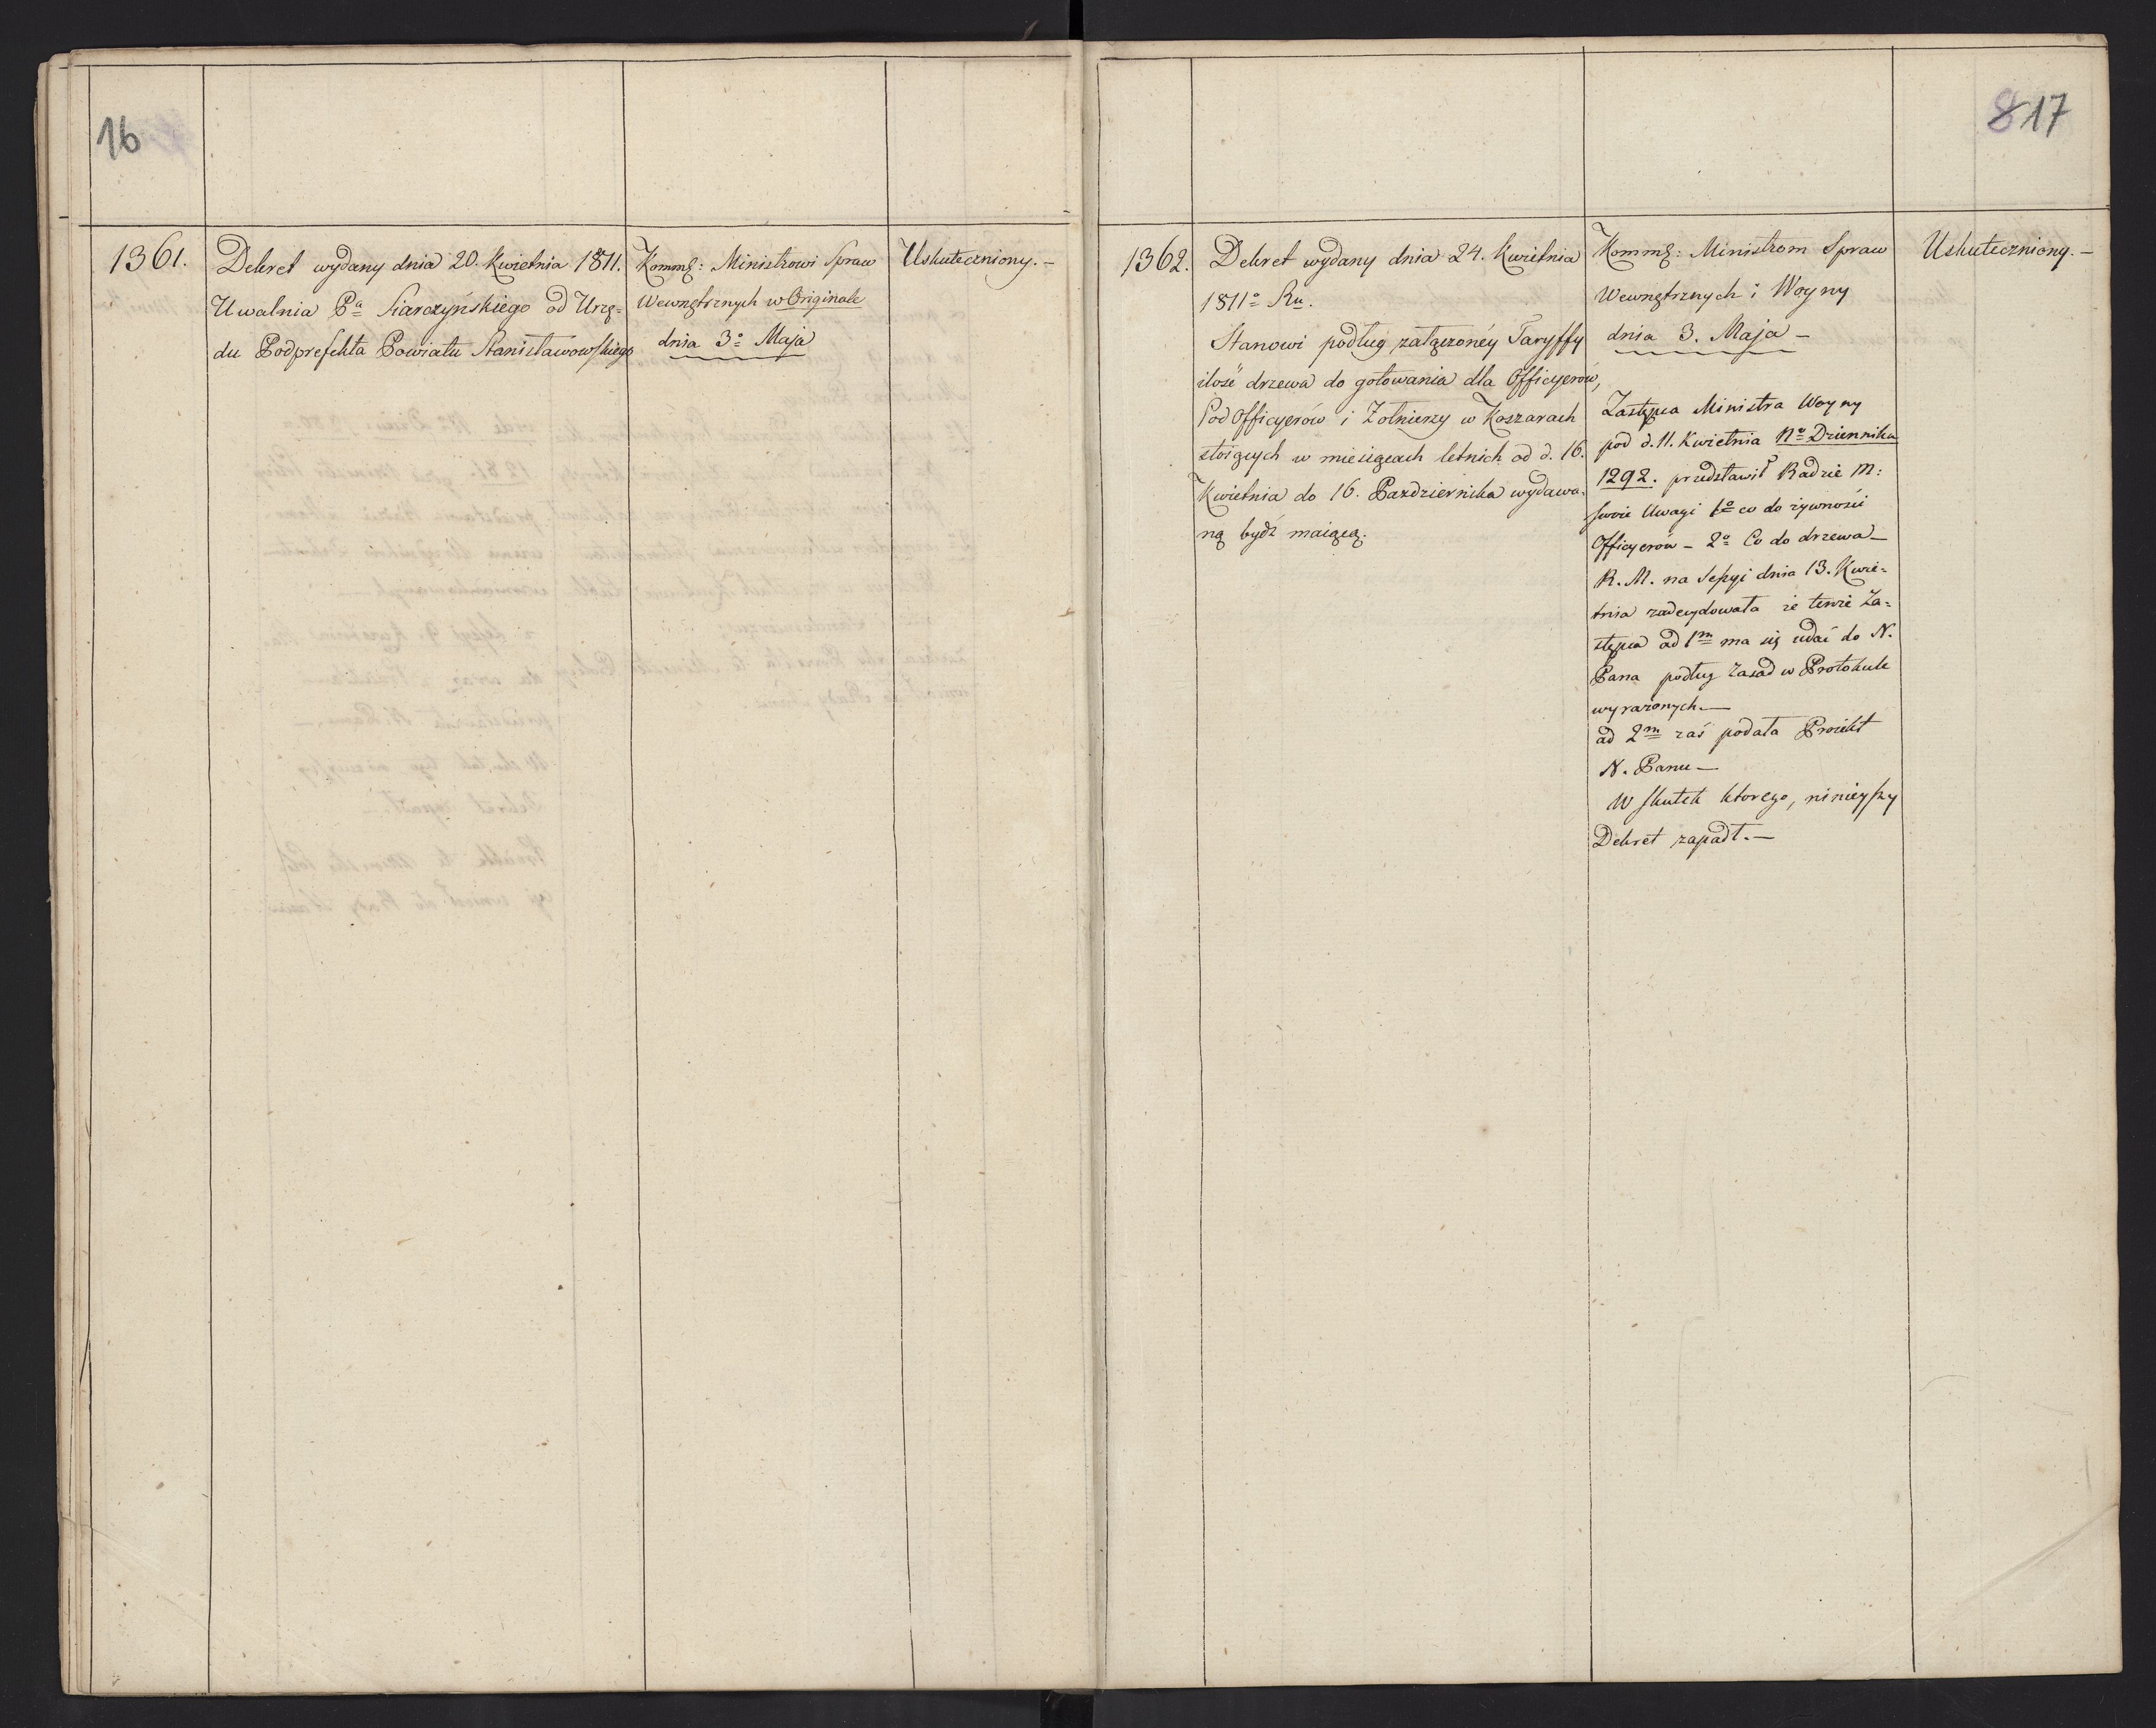 16
1361.
Dekret wydany dnia 20. Kwietnia 1811.
Uwalnia Pa Siarczyńskiego od Urzę=
du Podprefekta Powiatu Stanisławowskiego
Kommg: Ministrowi Spraw
Wewnętrznych w Originale
dnia 3o Maja
Uskuteczniony. –
8 17
1362.
Dekret wydany dnia 24. Kwietnia
1811o Ru.
Stanowi podług załączonéy Taryffy
ilość drzewa do gotowania dla Officyerow,
Pod Officyerów i Zołnierzy w Koszarach
stoiących w miesiącach letnich od d. 16.
Kwietnia do 16. Pazdziernika wydawa=
ną bydź maiącą.
Kommg: Ministrom Spraw
Wewnętrznych i Woyny
dnia 3. Maja –
Zastępca Ministra Woyny
pod d. 11. Kwietnia No Dziennika
1292. przedstawił Radzie M:
swoie Uwagi 1o co do żywności
Officyerów – 2o Co do drzewa –
R. M. na Sessyi dnia 13. Kwie=
tnia zadecydowała że tenże Za=
stępca ad 1m ma się udać do N.
Pana podług Zasad w Protokule
wyrażonych. –
ad 2m zaś podała Proiekt
N. Panu –
W skutek ktorego, ninieyszy
Dekret zapadł. –
Uskuteczniony. –